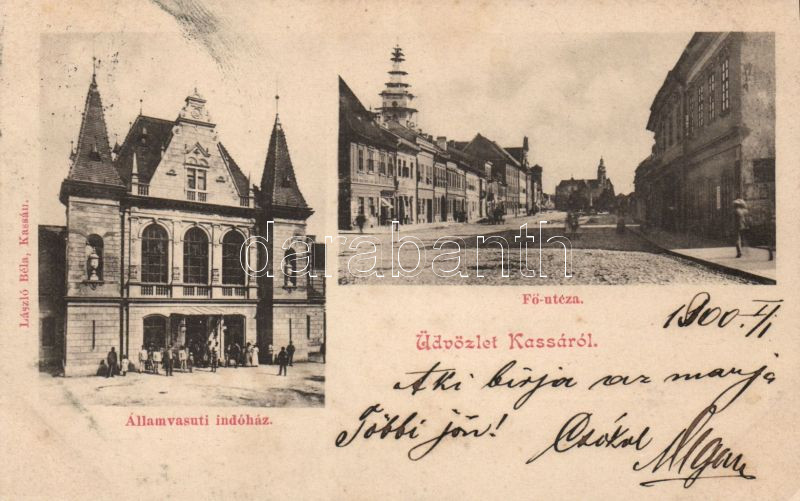 László Béla, Kassán.
Államvasuti indóház.
Fő-utcza.
Üdvözlet Kassáról.
1900. I/1
Aki birja az marja
Többi jön!
Csókol
darabanth